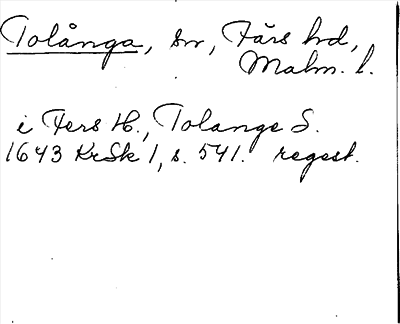 Tolånga, sn, Färs hd,
Malm. l.
i Fers H., Tolange S.
1643 KrSk 1, s. 541. regest.